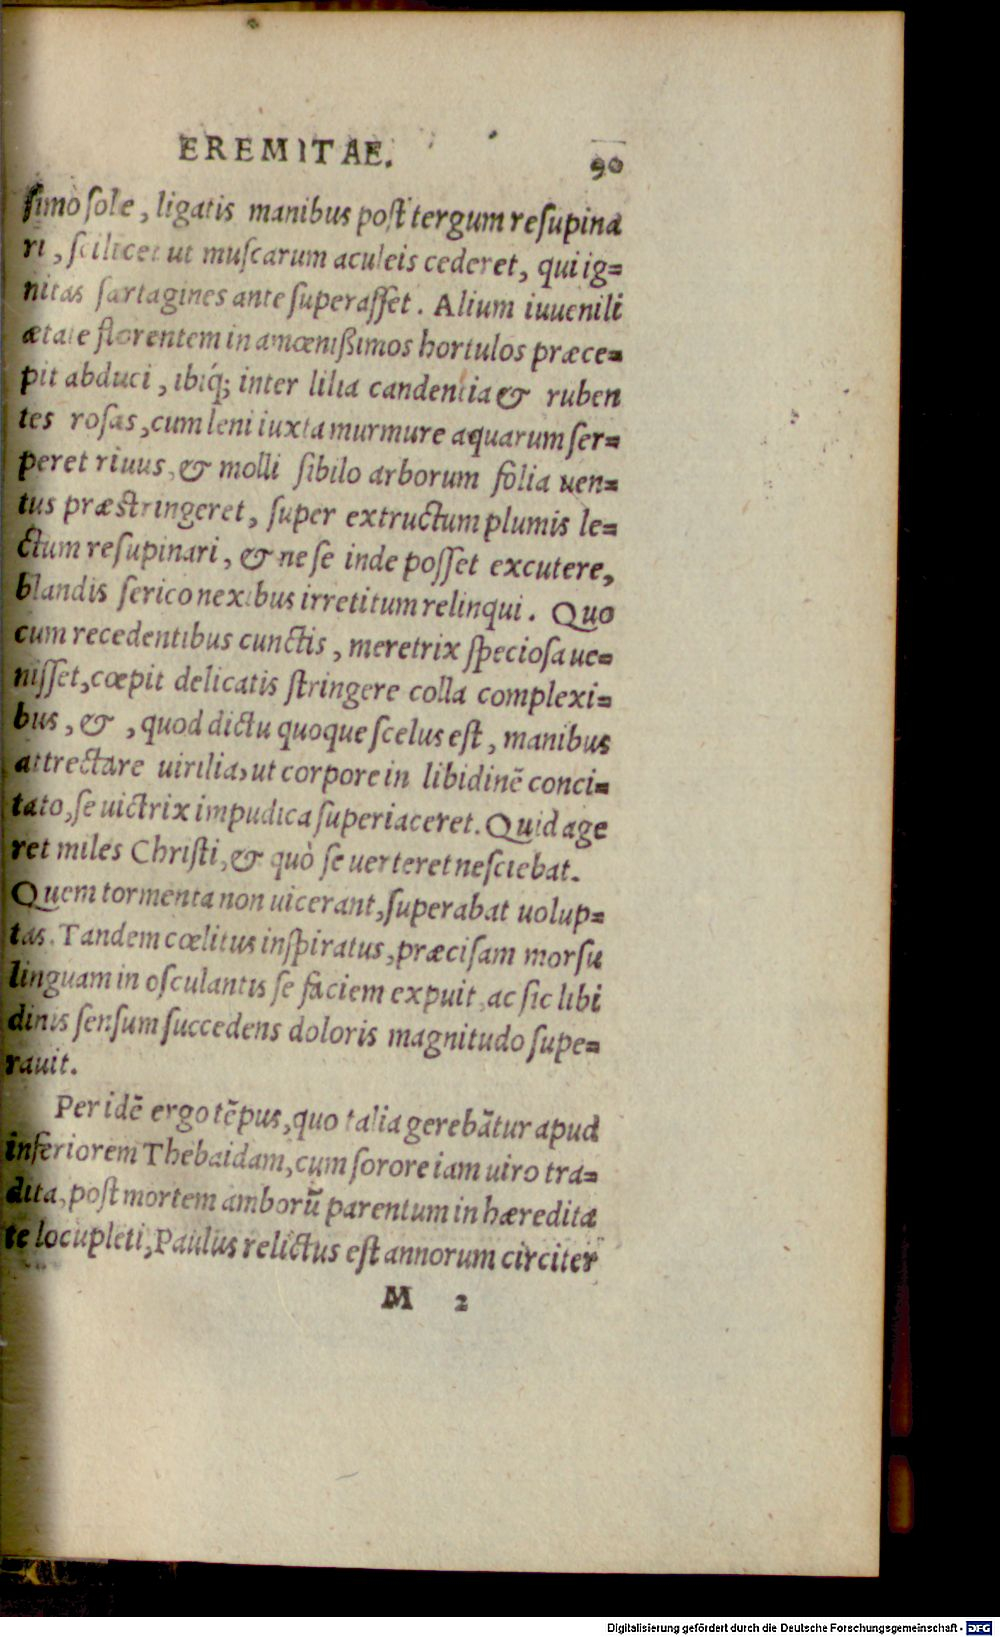 EREMITAE. 90
ſimo ſole, ligatis manibus poſt tergum reſupina
ri, ſcilicet ut muſcarum aculeis cederet, qui ig=
nitas ſartagines ante ſuperaſſet. Alium iuuenili
ætate florentem in amœnißimos hortulos præce=
pit abduci, ibiq́; inter lilia candentia & ruben
tes roſas, cum leni iuxta murmure aquarum ſer=
peret riuus, & molli ſibilo arborum folia uen=
tus præſtringeret, ſuper extructum plumis le=
ctum reſupinari, & ne ſe inde poſſet excutere,
blandis ſerico nexibus irretitum relinqui. Quo
cum recedentibus cunctis, meretrix ſpecioſa ue=
niſſet, cœpit delicatis ſtringere colla complexi=
bus, &, quod dictu quoque ſcelus eſt, manibus
attrectare uirilia, ut corpore in libidinē conci=
tato, ſe uictrix impudica ſuperiaceret. Quid age
ret miles Chriſti, & quò ſe uerteret neſciebat.
Quem tormenta non uicerant, ſuperabat uolup=
tas. Tandem cœlitus inſpiratus, præciſam morſu
linguam in oſculantis ſe faciem expuit, ac ſic libi
dinis ſenſum ſuccedens doloris magnitudo ſupe=
rauit.
Per idē ergo tēpus, quo talia gerebātur apud
inferiorem Thebaidam, cum ſorore iam uiro tra=
dita, poſt mortem amborū parentum in hæredita
te locupleti, Paulus relictus eſt annorum circiter
M 2
Digitalisierung gefördert durch die Deutsche Forschungsgemeinschaft - DFG